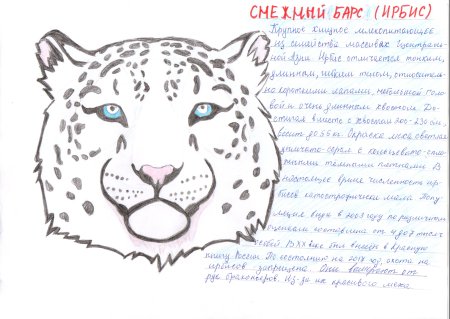 СМЕЖНЫЙ БАРС (ИРБИС)
Крупное хищное млекопитающее
из семейства массивах Централь-
ной Азии. Ирбис отличается тонким,
длинным, гибким телом, относитель-
но короткими лапами, небольшой голо-
вой и очень длинным хвостом. До-
стигая вместе с хвостом 200-230 см,
весит до 55 кг. Окраска меха светлая
дымчато-серая с кольцевидно-спло-
шными тёмными пятнами. В
настоящее время численность ир-
бисов катастрофически мала. Попу
ляция вида в 2003 году по различным
оценкам составляла от 4 до 7 тысяч
особей. В XX веке был внесён в Красную
книгу России. По состоянию на 2014 год, охота на
ирбисов запрещена. Они вымирают от
рук браконьеров. Из-за их красивого меха